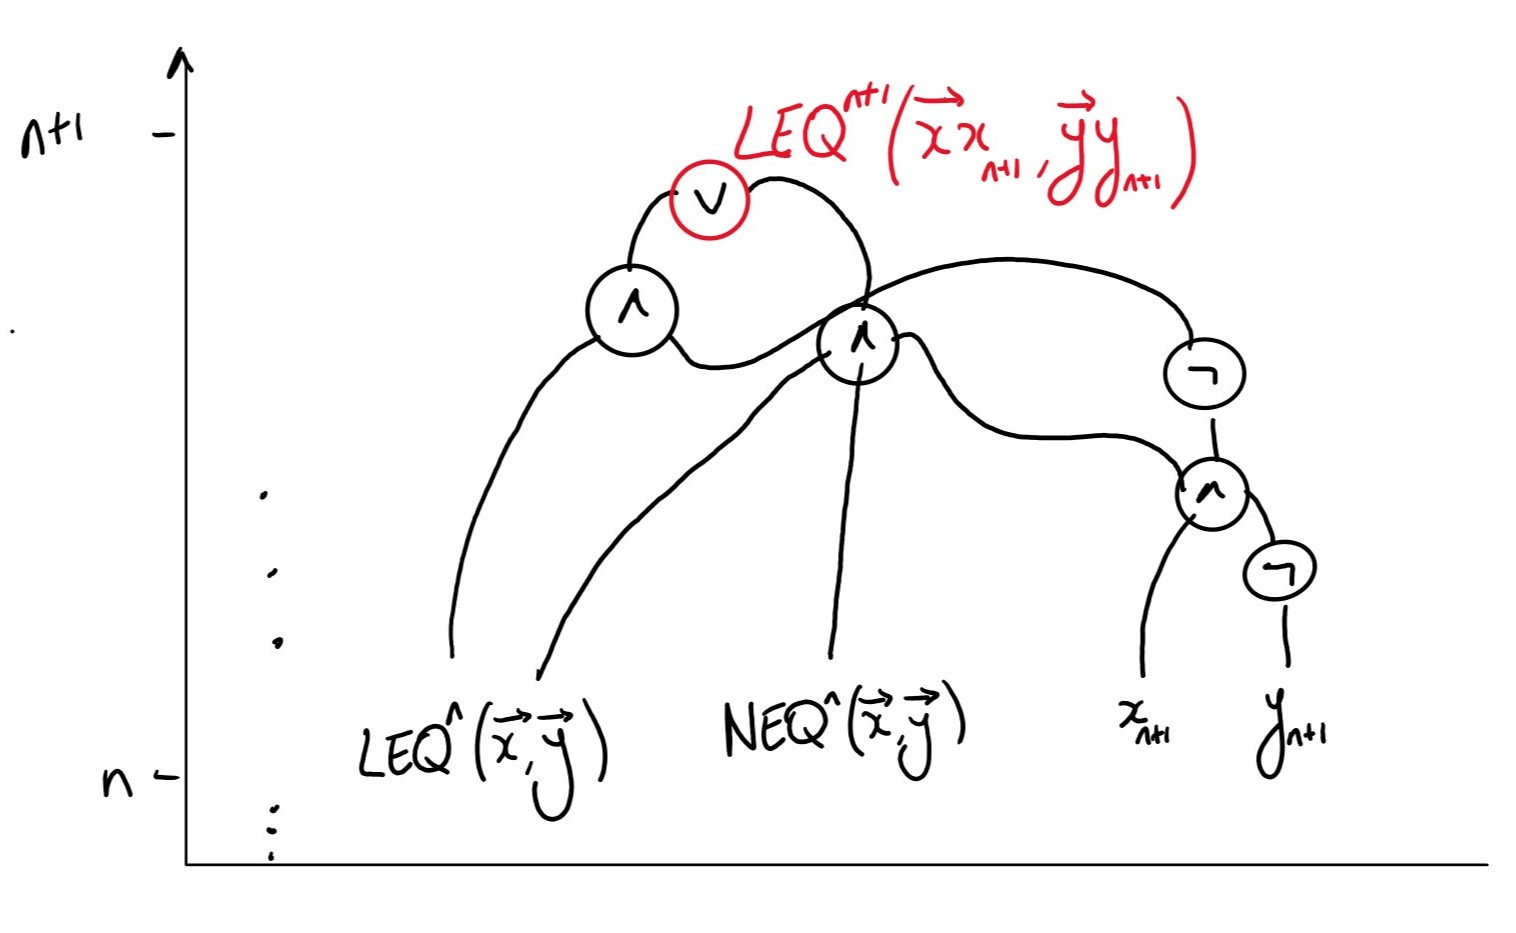 n+1
LEQⁿ⁺¹(x⃗x_{n+1}, y⃗y_{n+1})
∨
∧
∧
¬
∧
¬
LEQⁿ(x⃗, y⃗)
NEQⁿ(x⃗, y⃗)
x_{n+1}
y_{n+1}
n